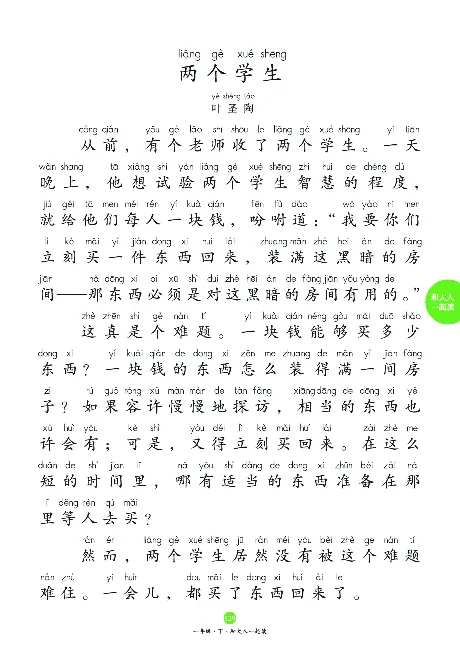 liǎng gè xué shēng
两个学生
yè shèng táo
叶圣陶
cóng qián yǒu gè lǎo shī shōu le liǎng gè xué shēng yì tiān
从前，有个老师收了两个学生。一天
wǎn shang tā xiǎng shì yàn liǎng gè xué shēng zhì huì de chéng dù
晚上，他想试验两个学生智慧的程度，
jiù gěi tā men měi rén yí kuài qián fēn fù dào wǒ yào nǐ men
就给他们每人一块钱，吩咐道：“我要你们
lì kè mǎi yí jiàn dōng xi huí lái zhuāng mǎn zhè hēi àn de fáng
立刻买一件东西回来，装满这黑暗的房
jiān nà dōng xi bì xū shì duì zhè hēi àn de fáng jiān yǒu yòng de
间——那东西必须是对这黑暗的房间有用的。”
zhè zhēn shì gè nán tí yí kuài qián néng gòu mǎi duō shǎo
这真是个难题。一块钱能够买多少
dōng xi yí kuài qián de dōng xi zěn me zhuāng de mǎn yì jiān fáng
东西？一块钱的东西怎么装得满一间房
zi rú guǒ róng xǔ màn màn de tàn fǎng xiāng dāng de dōng xi yě
子？如果容许慢慢地探访，相当的东西也
xǔ huì yǒu kě shì yòu děi lì kè mǎi huí lái zài zhè me
许会有；可是，又得立刻买回来。在这么
duǎn de shí jiān lǐ nǎ yǒu shì dàng de dōng xi zhǔn bèi zài nà
短的时间里，哪有适当的东西准备在那
lǐ děng rén qù mǎi
里等人去买？
rán ér liǎng gè xué shēng jū rán méi yǒu bèi zhè ge nán tí
然而，两个学生居然没有被这个难题
nán zhù yí huìr dōu mǎi le dōng xi huí lái le
难住。一会儿，都买了东西回来了。
和大人
一起读
129
一年级·下·和大人一起读